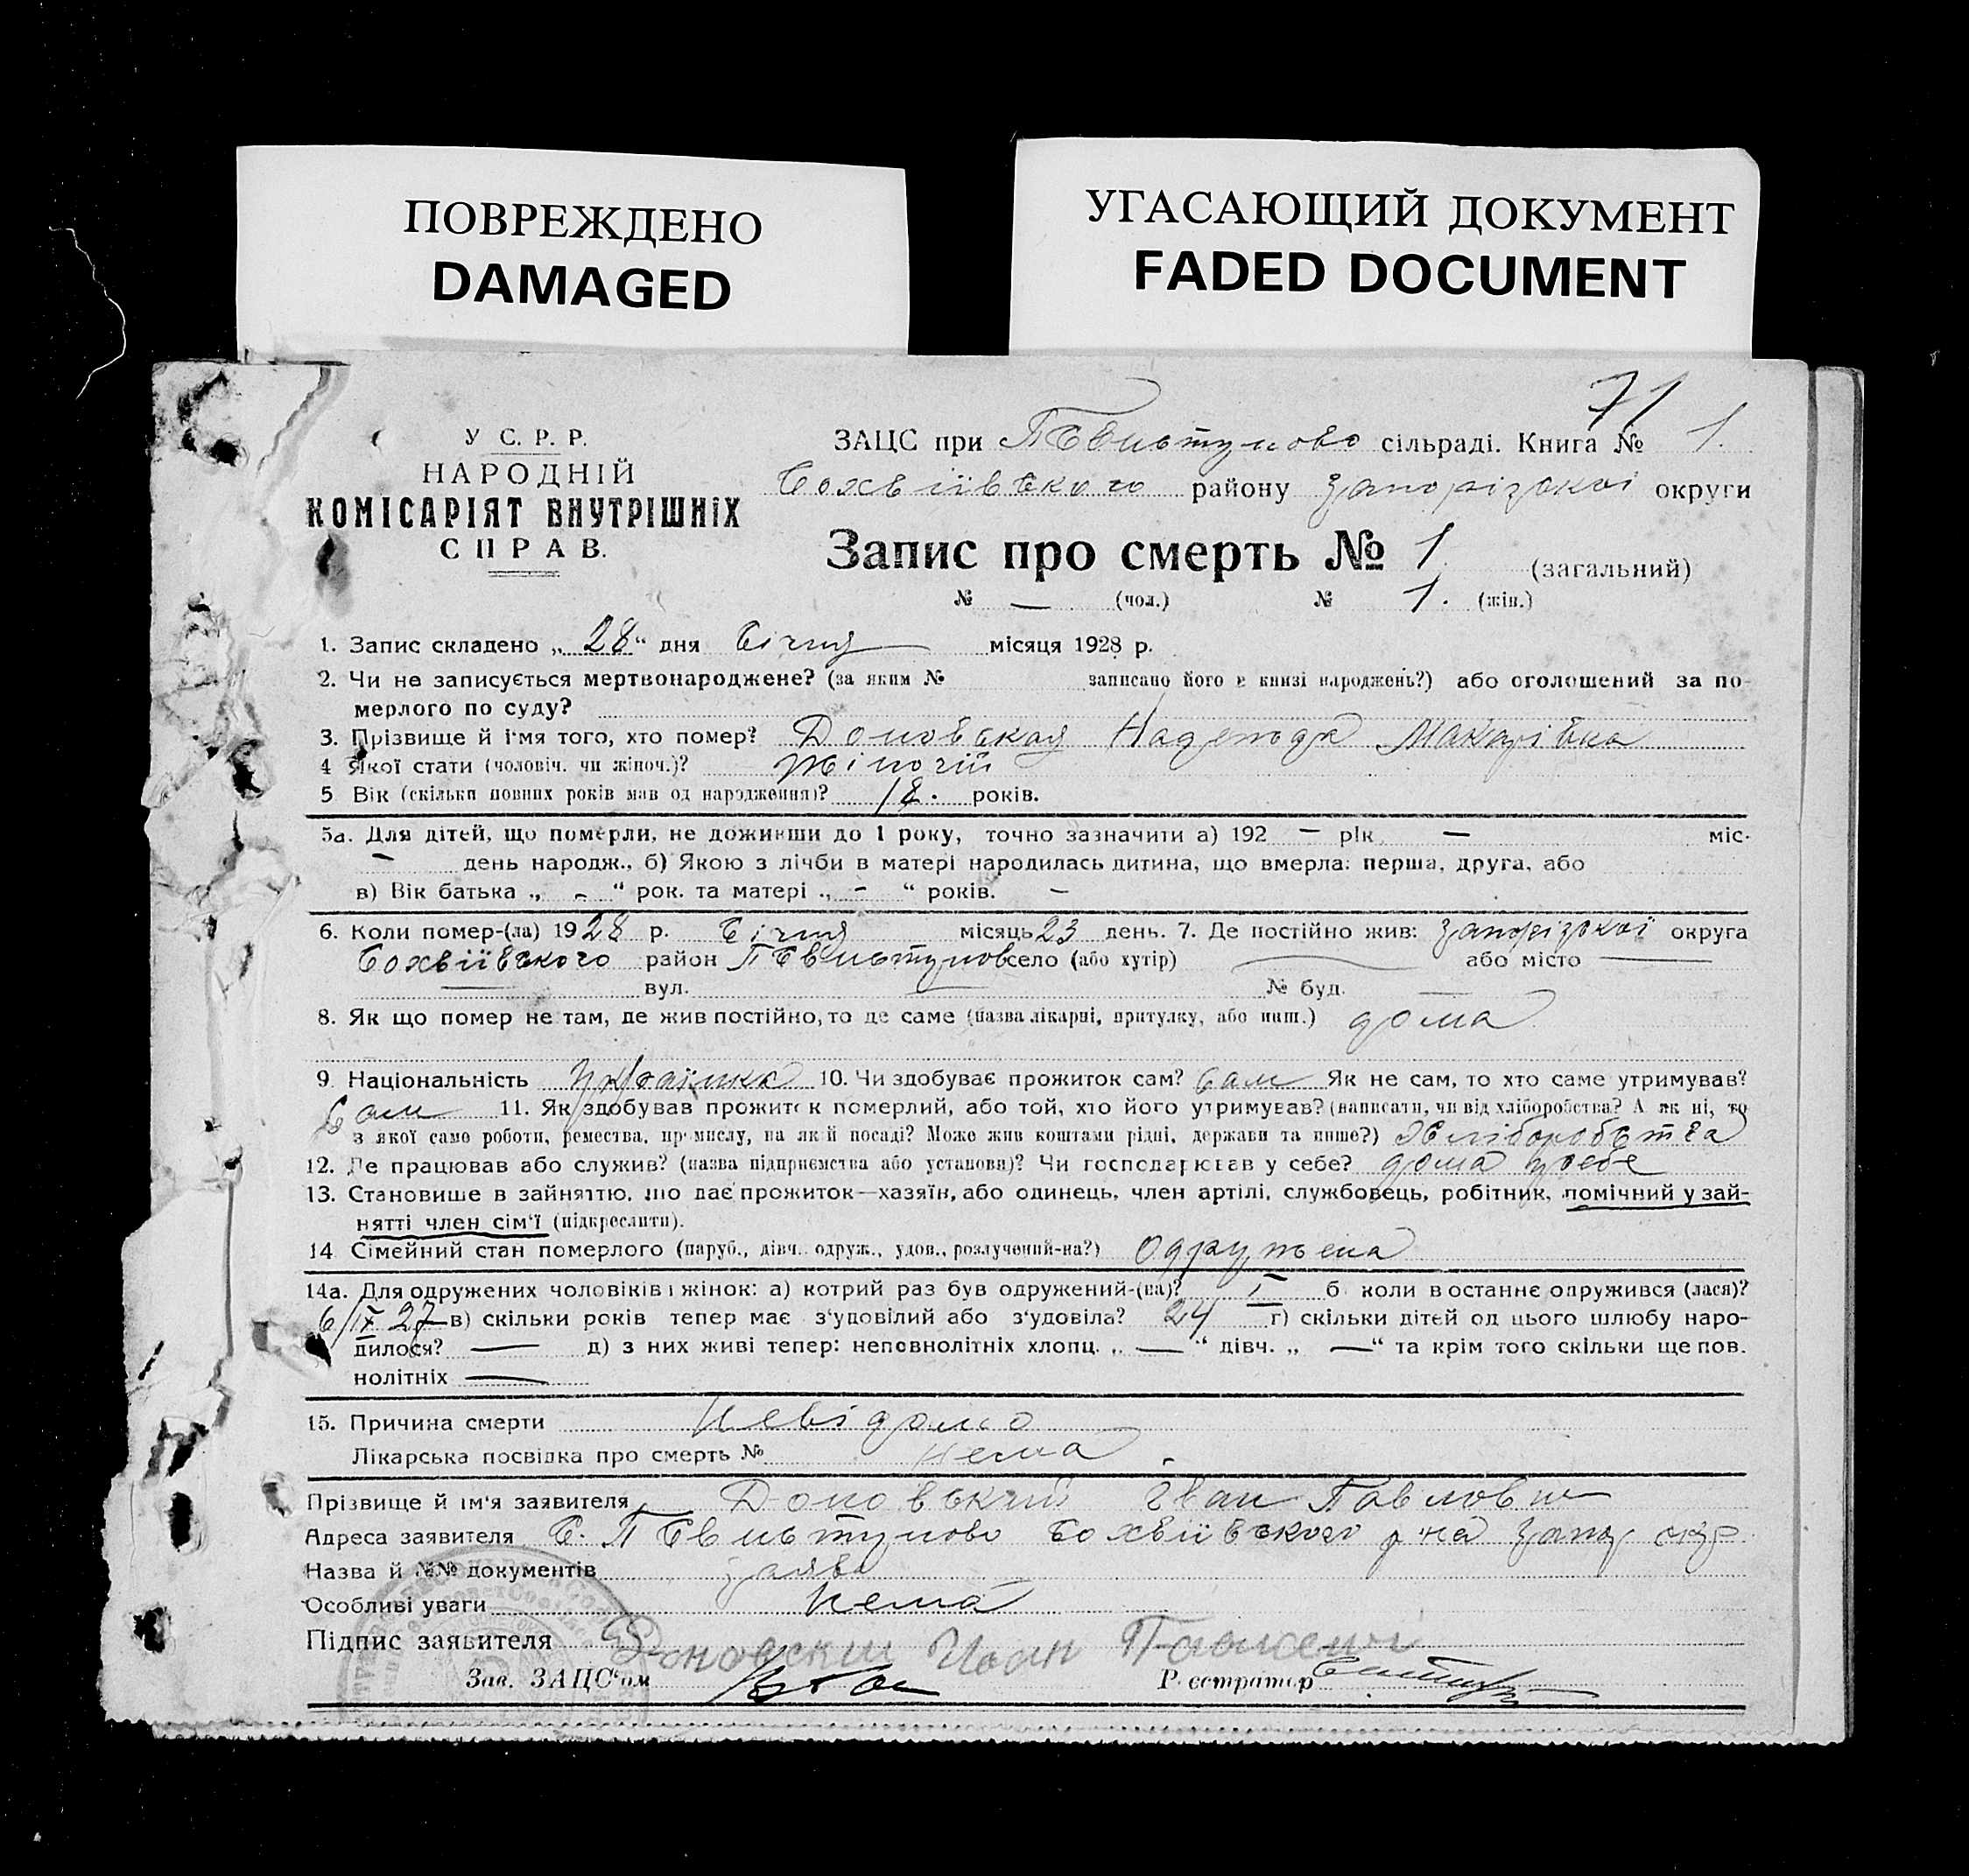 ПОВРЕЖДЕНО
DAMAGED
УГАСАЮЩИЙ ДОКУМЕНТ
FADED DOCUMENT
71
У С. Р. Р.
НАРОДНІЙ
КОМІСАРІЯТ ВНУТРІШНІХ
СПРАВ.
ЗАЦС при сільраді. Книга № 1.
Софіївського району Запорізької округи
Запис про смерть № 1 (загальний)
№ — (чол.) № 1. (жін.)
1. Запис складено „ 28 “ дня Січня місяця 1928 р.
2. Чи не записується мертвонароджене? (за яким № записано його в книзі народжень?) або оголошений за по-
мерлого по суду?
3. Прізвище й ім'я того, хто помер? Доновская Надежда Макарівна
4 Якої статі (чоловіч. чи жіноч.)? жіночій
5 Вік (скільки повних років мав од народження)? 18. років.
5а. Для дітей, що померли, не доживши до 1 року, точно зазначити а) 192 — рік — міс.
— день народж., б) Якою з лічби в матері народилась дитина, що вмерла: перша, друга, або
в) Вік батька „ - “ рок. та матері „ - “ років. —
6. Коли помер-(ла) 1928 р. Січня місяць 23 день. 7. Де постійно жив: Запорізкої округа
район село (або хутір) — або місто —
— вул. — № буд. —
8. Як що помер не там, де жив постійно, то де саме (назва лікарні, притулку, або инш.) дома
9. Національність українка 10. Чи здобуває прожиток сам? Сам Як не сам, то хто саме утримував?
Сам 11. Як здобував прожиток померлий, або той, хто його утримував? (написати, чи від хліборобства? А як ні, то
з якої само роботи, ремества, промислу, на якій посаді? Може жив коштами рідні, держави та инше?) Хліборобства
12. Де працював або служив? (назва підприємства або установи)? Чи господарював у себе? дома усебе
13. Становище в зайняттю, що дає прожиток—хазяїн, або одинець, член артілі, службовець, робітник, помічний у зай-
нятті член сім'ї (підкреслити).
14. Сімейний стан померлого (паруб., дівч. одруж., удов., розлучений-на?) Одружена
14а. Для одружених чоловіків і жінок: а) котрий раз був одружений-(на)? I б коли востаннє одружився (лася)?
6/IX 27 в) скільки років тепер має з'удовілий або з'удовіла? 24 г) скільки дітей од цього шлюбу наро-
дилося? — д) з них живі тепер: неповнолітніх хлопц. „ — “ дівч. „ — “ та крім того скільки ще пов.
нолітніх —
15. Причина смерти Невідомо
Лікарська посвідка про смерть № Нема
Прізвище й ім'я заявителя Доновський Іван Павлович
Адреса заявителя С. р-на Запор окр
Назва й №№ документів заява
Особливі уваги Нема
Підпис заявителя Доновский Иван
Зав. ЗАЦС'ом Реєстратор